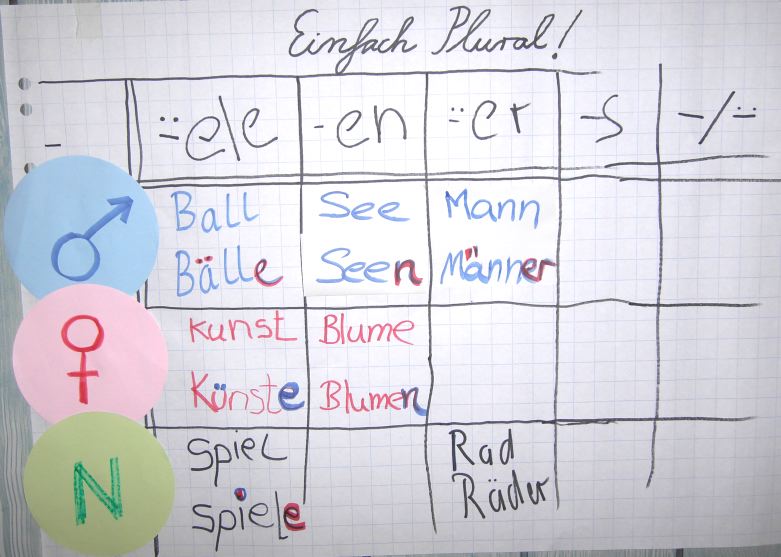 Einfach Plural!
- ̈e/e -en ̈er -s -/ ̈
Ball See Mann
Bälle Seen Männer
Kunst Blume
Künste Blumen
Spiel Rad
Spiele Räder
N